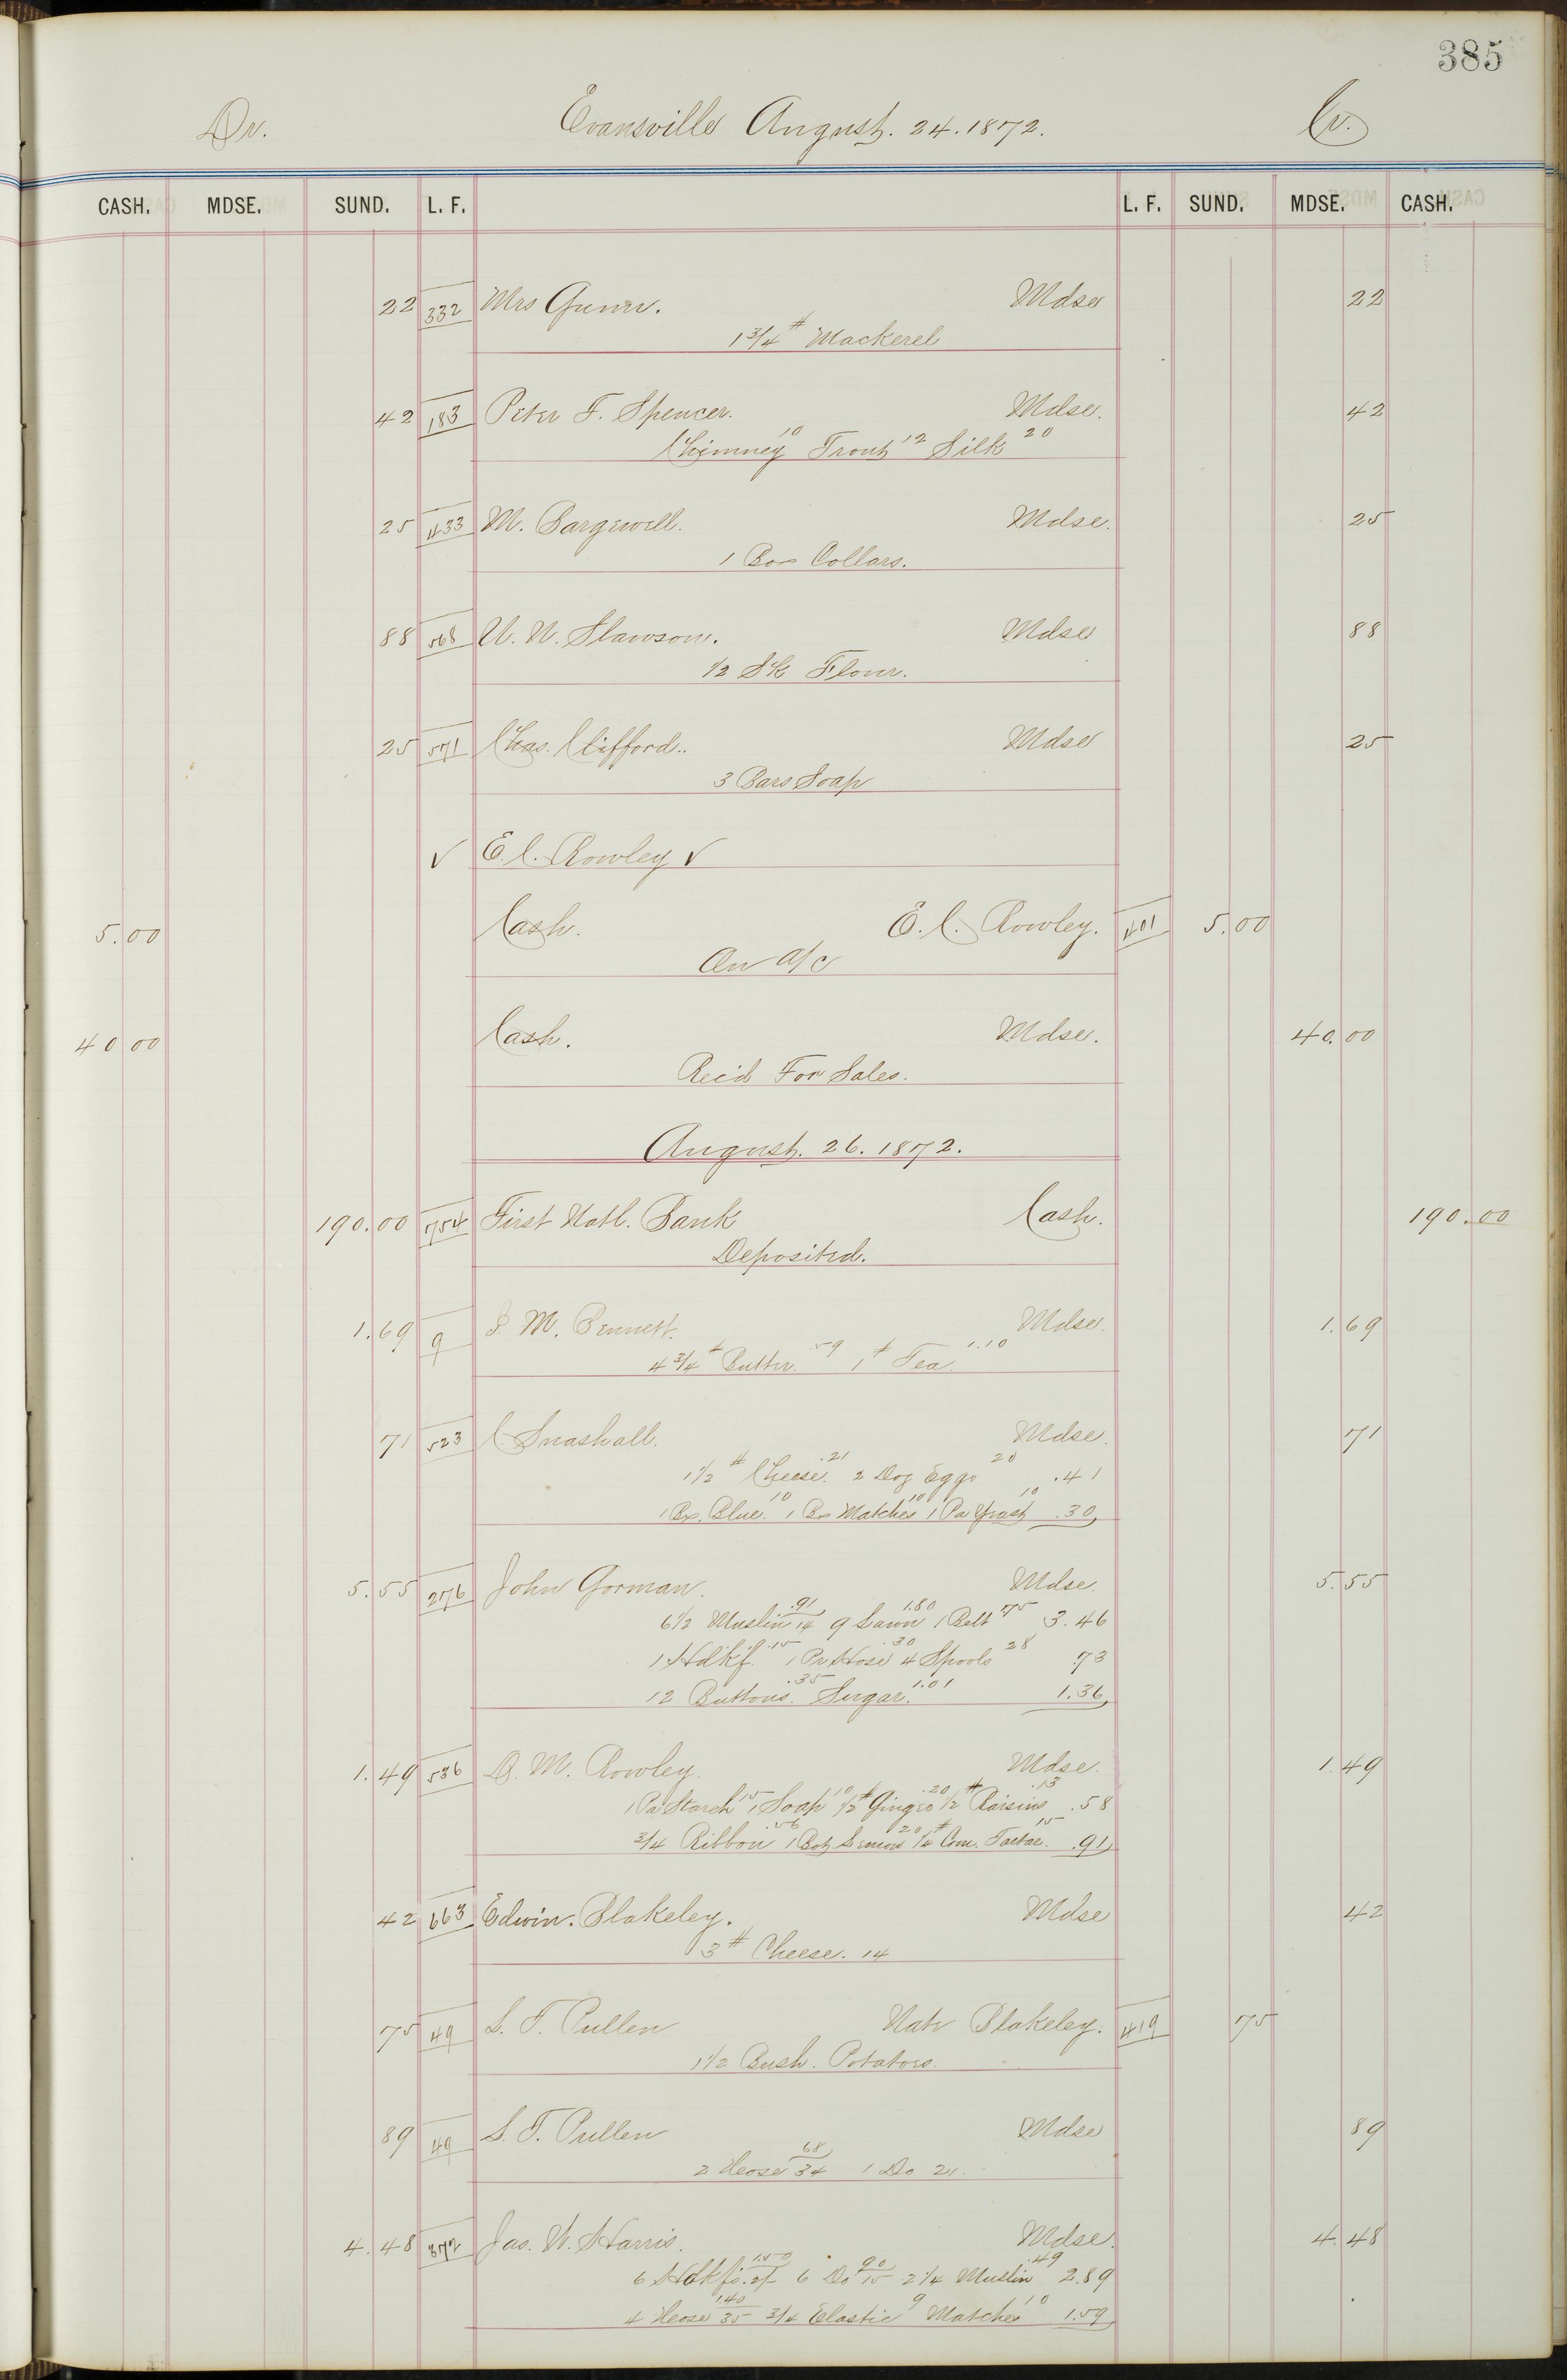 385
Dr. Evansville August. 24. 1872. Cr.
CASH. MDSE. SUND. L. F. L. F. SUND. MDSE. CASH.
22 332 Mrs Gunn. Mdse 22
1 3/4 # Mackerel
42 183 Peter F. Spencer. Mdse. 42
Chimney 10 Trout 12 Silk 20
25 433 M. Bargewell. Mdse. 25
1 Box Collars.
88 568 U. W. Slawson. Mdse 88
1/2 Sk Flour.
25 571 Chas. Clifford.. Mdse 25
3 Bars Soap
✓ E. C. Rowley ✓
5.00 Cash. E. C. Rowley. 401 5.00
On a/c
40 00 Cash. Mdse. 40.00
Rec'd For Sales.
August. 26. 1872.
190.00 754 First Natl. Bank Cash. 190.00
Deposited.
1.69 9 M. Bennett. Mdse. 1.69
4 3/4 # Butter. 59 1 # Tea. 1.10
71 523 C Snashall. Mdse. 71
1 1/2 # Cheese. .21 2 Doz Eggs 20 .41
1 Bx. Blue. 10 1 Bx Matches 10 1 Pa Yeast 10 .30
5.55 276 John Gorman. Mdse. 5.55
6 1/2 Muslin .91 14 9 Lawn 1.80 1 Belt 75 3.46
1 Hdkf. .15 1 Pr Hose .30 4 Spools 28 .73
12 Buttons. .35 Sugar. 1.01 1.36
1.49 536 D. M. Rowley. Mdse. 1.49
1 Pa Starch 15 1 Soap 10 1/2 # Ginger .20 1/2 # Raisins .13 .58
3/4 Ribbon .56 1 Bot Lemon 20 1/4 # Crm. Tartar. 15 .91
42 663 Edwin. Blakeley. Mdse 42
3 # Cheese. 14
75 49 S. T. Pullen Nate Blakeley. 419 75
1 1/2 Bush. Potatoes.
89 49 S. T. Pullen Mdse 89
2 Heose 68 34 1 Do 21.
4.48 372 Jas. W. Harris. Mdse. 4.48
6 Hdkfs. 1.50 25 6 Do 90 15 2 1/4 Muslin .49 2.89
4 Heose 1.40 35 3/4 Elastic 9 Matches 10 1.59